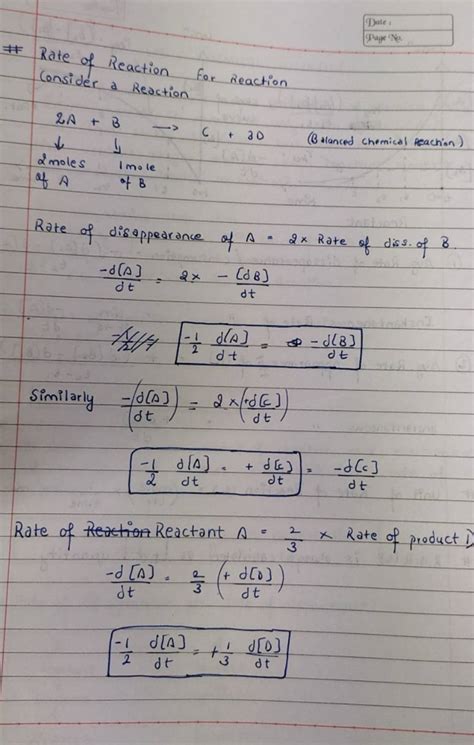 Date :
Page No.
# Rate of Reaction For Reaction
Consider a Reaction
2A + B → C + 3D (Balanced Chemical Reaction)
↓ ↓
2moles 1mole
of A of B
Rate of disappearance of A = 2x Rate of diss. of B.
-d[A]/dt = 2x - [dB]/dt
-1/2 d[A]/dt = -d[B]/dt
Similarly -(d[A]/dt) = 2x(+d[C]/dt)
-1/2 d[A]/dt = + d[C]/dt = -d[C]/dt
Rate of Reaction Reactant A = 2/3 x Rate of product D
-d[A]/dt = 2/3 (+ d[D]/dt)
-1/2 d[A]/dt = +1/3 d[D]/dt